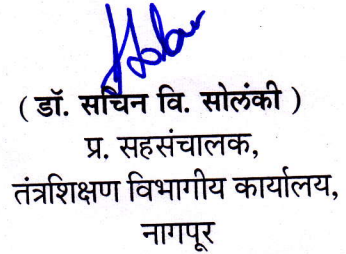 ( डॉ. सचिन वि. सोलंकी )
प्र. सहसंचालक,
तंत्रशिक्षण विभागीय कार्यालय,
नागपूर